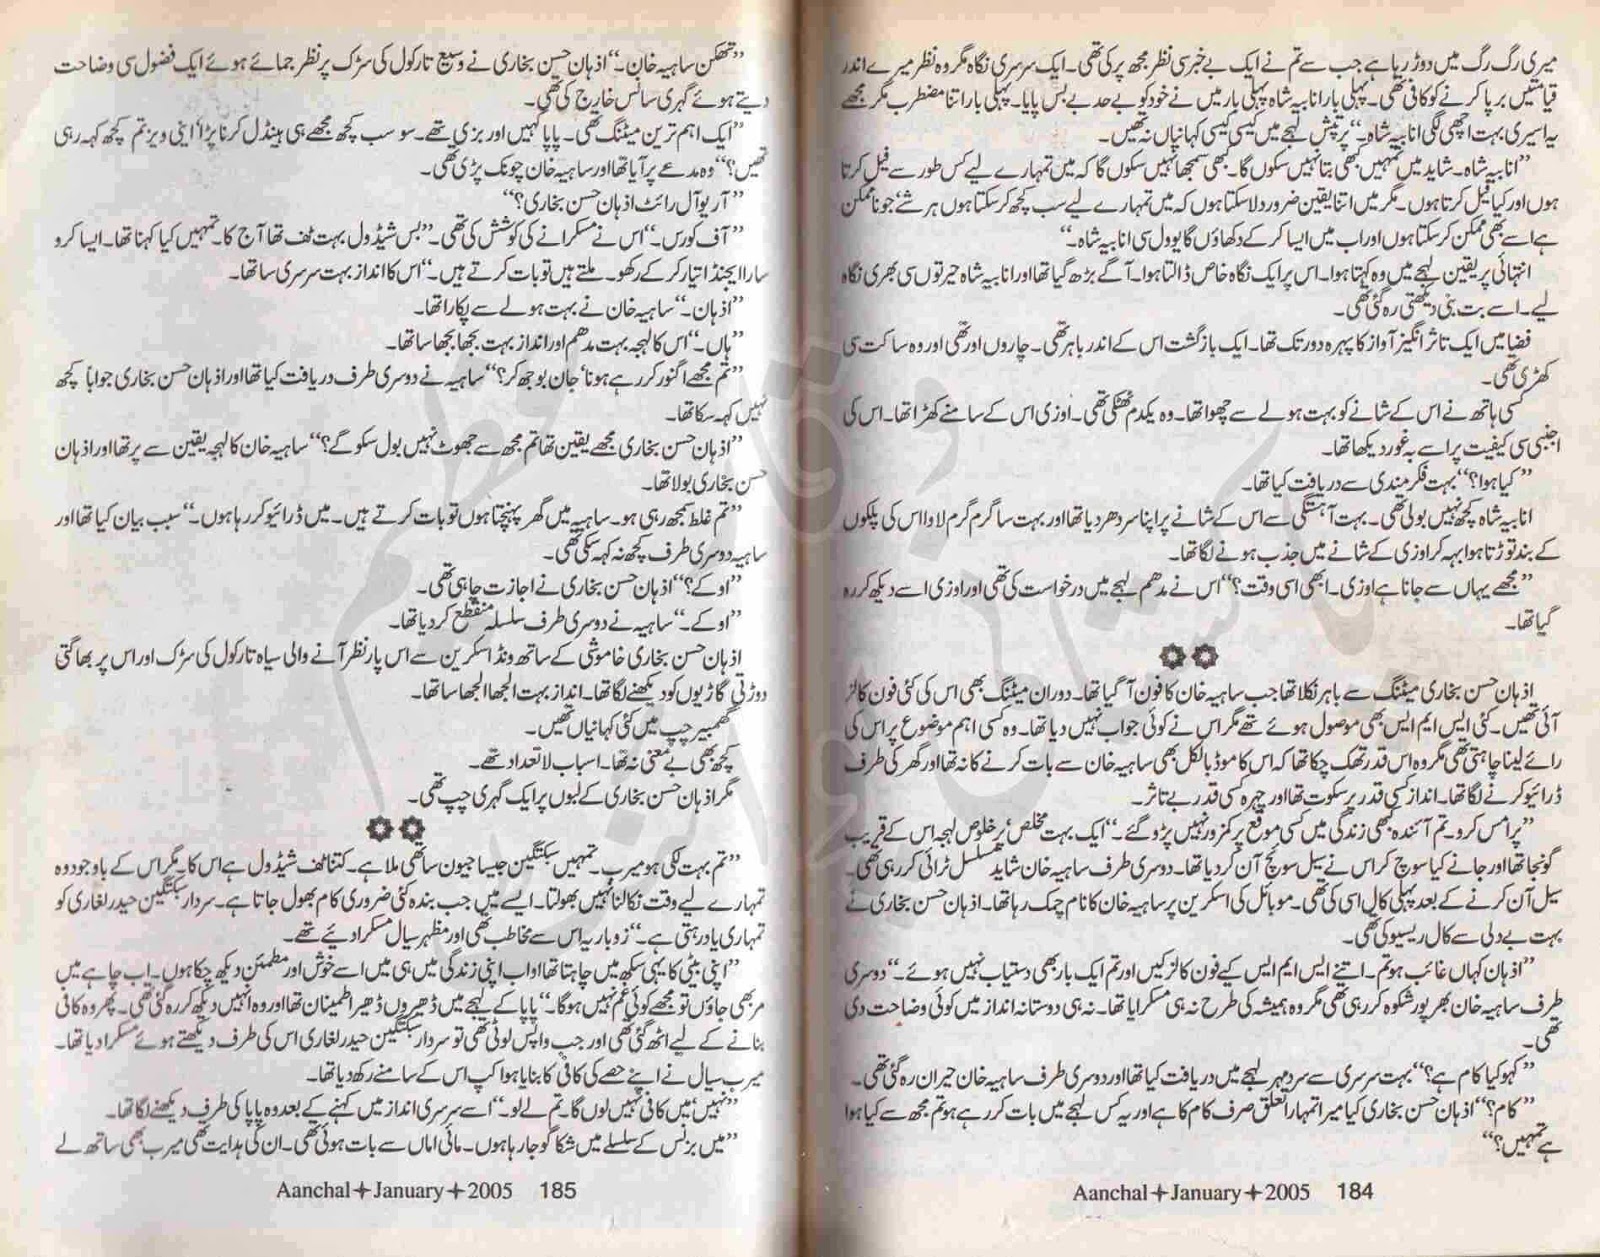 میری رگ رگ میں دوڑ رہا ہے جب سے تم نے ایک بے خبر سی نظر مجھ پر کی تھی۔ ایک سرسری نگاہ مگر وہ نظر میرے اندر
قیامتیں برپا کرنے کو کافی تھی۔ پہلی بار انابیہ شاہ پہلی بار میں نے خود کو بے حد بے بس پایا۔ پہلی بار اتنا مضطرب مگر مجھے
یہ اسیری بہت اچھی لگی انابیہ شاہ۔“ پرتپش لہجے میں کیسی کیسی کہانیاں نہ تھیں۔
”انابیہ شاہ۔ شاید میں تمہیں کبھی بتا نہیں سکوں گا۔ کبھی سمجھا نہیں سکوں گا کہ میں تمہارے لیے کس طور سے فیل کرتا
ہوں اور کیا فیل کرتا ہوں۔ مگر میں اتنا یقین ضرور دلا سکتا ہوں کہ میں تمہارے لیے سب کچھ کر سکتا ہوں ہر شے‘ جو ناممکن
ہے اسے بھی ممکن کر سکتا ہوں اور اب میں ایسا کر کے دکھاؤں گا یو ول سی انابیہ شاہ۔“
انتہائی پر یقین لہجے میں وہ کہتا ہوا۔ اس پر ایک نگاہ خاص ڈالتا ہوا۔ آگے بڑھ گیا تھا اور انابیہ شاہ حیرتوں سی بھری نگاہ
لیے۔ اسے بت بنی دیکھتی رہ گئی تھی۔
فضا میں ایک تاثر انگیز آواز کا پہرہ دور تک تھا۔ ایک بازگشت اس کے اندر باہر تھی۔ چاروں اور تھی اور وہ ساکت سی
کھڑی تھی۔
کسی ہاتھ نے اس کے شانے کو بہت ہولے سے چھوا تھا۔ وہ یکدم ٹھٹکی تھی۔ اوزی اس کے سامنے کھڑا تھا۔ اس کی
اجنبی سی کیفیت پر اسے بہ غور دیکھا تھا۔
”کیا ہوا؟“ بہت فکرمندی سے دریافت کیا تھا۔
انابیہ شاہ کچھ نہیں بولی تھی۔ بہت آہستگی سے اس کے شانے پر اپنا سر دھر دیا تھا اور بہت سا گرم گرم لاوا اس کی پلکوں
کے بند توڑتا ہوا بہہ کر اوزی کے شانے میں جذب ہونے لگا تھا۔
”مجھے یہاں سے جانا ہے اوزی۔ ابھی اسی وقت؟“ اس نے مدھم لہجے میں درخواست کی تھی اور اوزی اسے دیکھ کر رہ
گیا تھا۔
اذہان حسن بخاری میٹنگ سے باہر نکلا تھا جب ساہیہ خان کا فون آ گیا تھا۔ دوران میٹنگ بھی اس کی کئی فون کالز
آئی تھیں۔ کئی ایس ایم ایس بھی موصول ہوئے تھے مگر اس نے کوئی جواب نہیں دیا تھا۔ وہ کسی اہم موضوع پر اس کی
رائے لینا چاہتی تھی مگر وہ اس قدر تھک چکا تھا کہ اس کا موڈ بالکل بھی ساہیہ خان سے بات کرنے کا نہ تھا اور گھر کی طرف
ڈرائیو کرنے لگا تھا۔ انداز کسی قدر پرسکوت تھا اور چہرہ کسی قدر بے تاثر۔
”پرامس کرو۔ تم آئندہ کبھی زندگی میں کسی موقع پر کمزور نہیں پڑو گے۔“ ایک بہت مخلص‘ پرخلوص لہجہ اس کے قریب
گونجا تھا اور جانے کیا سوچ کر اس نے سیل سوئچ آن کر دیا تھا۔ دوسری طرف ساہیہ خان شاید مسلسل ٹرائی کر رہی تھی۔
سیل آن کرنے کے بعد پہلی کال اسی کی تھی۔ موبائل کی اسکرین پر ساہیہ خان کا نام چمک رہا تھا۔ اذہان حسن بخاری نے
بہت بے دلی سے کال ریسیو کی تھی۔
”اذہان کہاں غائب ہو تم۔ اتنے ایس ایم ایس کیے فون کالز کیں اور تم ایک بار بھی دستیاب نہیں ہوئے۔“ دوسری
طرف ساہیہ خان بھرپور شکوہ کر رہی تھی مگر وہ ہمیشہ کی طرح نہ ہی مسکرایا تھا۔ نہ ہی دوستانہ انداز میں کوئی وضاحت دی
تھی۔
”کہو کیا کام ہے؟“ بہت سرسری سے سرد مہر لہجے میں دریافت کیا تھا اور دوسری طرف ساہیہ خان حیران رہ گئی تھی۔
”کام؟“ اذہان حسن بخاری کیا میرا تمہارا تعلق صرف کام کا ہے اور یہ کس لہجے میں بات کر رہے ہو تم مجھ سے کیا ہوا
ہے تمہیں؟“
Aanchal✦January✦2005 184
”تھکن ساہیہ خان۔“ اذہان حسن بخاری نے وسیع تارکول کی سڑک پر نظر جمائے ہوئے ایک فضول سی وضاحت
دیتے ہوئے گہری سانس خارج کی تھی۔
”ایک اہم ترین میٹنگ تھی۔ پاپا کہیں اور بزی تھے۔ سو سب کچھ مجھے ہی ہینڈل کرنا پڑا‘ اینی ویز تم کچھ کہہ رہی
تھیں؟“ وہ مدعے پر آیا تھا اور ساہیہ خان چونک پڑی تھی۔
”آر یو آل رائٹ اذہان حسن بخاری؟“
”آف کورس۔“ اس نے مسکرانے کی کوشش کی تھی۔ ”بس شیڈول بہت ٹف تھا آج کا۔ تمہیں کیا کہنا تھا۔ ایسا کرو
سارا ایجنڈا تیار کر کے رکھو۔ ملتے ہیں تو بات کرتے ہیں۔“ اس کا انداز بہت سرسری سا تھا۔
”اذہان۔“ ساہیہ خان نے بہت ہولے سے پکارا تھا۔
”ہاں۔“ اس کا لہجہ بہت مدھم اور انداز بہت بجھا بجھا سا تھا۔
”تم مجھے اگنور کر رہے ہونا‘ جان بوجھ کر؟“ ساہیہ نے دوسری طرف دریافت کیا تھا اور اذہان حسن بخاری جواباً کچھ
نہیں کہہ سکا تھا۔
”اذہان حسن بخاری مجھے یقین تھا تم مجھ سے جھوٹ نہیں بول سکو گے؟“ ساہیہ خان کا لہجہ یقین سے پر تھا اور اذہان
حسن بخاری بولا تھا۔
”تم غلط سمجھ رہی ہو۔ ساہیہ میں گھر پہنچتا ہوں تو بات کرتے ہیں۔ میں ڈرائیو کر رہا ہوں۔“ سبب بیان کیا تھا اور
ساہیہ دوسری طرف کچھ نہ کہہ سکی تھی۔
”اوکے؟“ اذہان حسن بخاری نے اجازت چاہی تھی۔
”اوکے۔“ ساہیہ نے دوسری طرف سلسلہ منقطع کر دیا تھا۔
اذہان حسن بخاری خاموشی کے ساتھ ونڈ اسکرین سے اس پار نظر آنے والی سیاہ تارکول کی سڑک اور اس پر بھاگتی
دوڑتی گاڑیوں کو دیکھنے لگا تھا۔ انداز بہت الجھا الجھا سا تھا۔
گھمبیر چپ میں کئی کہانیاں تھیں۔
کچھ بھی بے معنی نہ تھا۔ اسباب لاتعداد تھے۔
مگر اذہان حسن بخاری کے لبوں پر ایک گہری چپ تھی۔
”تم بہت لکی ہو میرب۔ تمہیں سبکتگین جیسا جیون ساتھی ملا ہے۔ کتنا ٹف شیڈول ہے اس کا۔ مگر اس کے باوجود وہ
تمہارے لیے وقت نکالنا نہیں بھولتا۔ ایسے میں جب بندہ کئی ضروری کام بھول جاتا ہے۔ سردار سبکتگین حیدر لغاری کو
تمہاری یاد رہتی ہے۔“ زوباریہ اس سے مخاطب تھی اور مظہر سیال مسکرا دیے تھے۔
”اپنی بیٹی کا یہی سکھ میں چاہتا تھا اور اب اپنی زندگی میں ہی میں اسے خوش اور مطمئن دیکھ چکا ہوں۔ اب چاہے میں
مر بھی جاؤں تو مجھے کوئی غم نہیں ہوگا۔“ پاپا کے لہجے میں ڈھیروں ڈھیر اطمینان تھا اور وہ انہیں دیکھ کر رہ گئی تھی۔ پھر وہ کافی
بنانے کے لیے اٹھ گئی تھی اور جب واپس لوٹی تھی تو سردار سبکتگین حیدر لغاری اس کی طرف دیکھتے ہوئے مسکرا دیا تھا۔
میرب سیال نے اپنے حصے کی کافی کا بنایا ہوا کپ اس کے سامنے رکھ دیا تھا۔
”نہیں‘ میں کافی نہیں لوں گا۔ تم لے لو۔“ اسے سرسری انداز میں کہنے کے بعد وہ پاپا کی طرف دیکھنے لگا تھا۔
”میں بزنس کے سلسلے میں شکاگو جا رہا ہوں۔ مائی اماں سے بات ہوئی تھی۔ ان کی ہدایت تھی میرب بھی ساتھ لے
Aanchal✦January✦2005 185